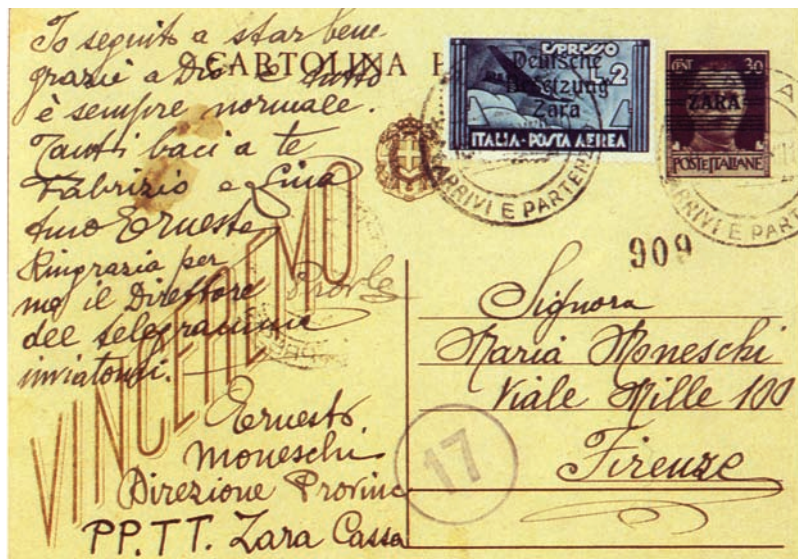 Io seguito a star bene
grazie a Dio e tutto
è sempre normale.
Tanti baci a te
Fabrizio e Lina
tuo Ernesto
Ringrazia per
me il Direttore
del telegramma
inviatomi.
Ernesto
Moneschi
Direzione Provinc
PP.TT. Zara Cassa
CARTOLINA P
VINCEREMO
ESPRESSO
L.2
Deutsche
Besetzung
Zara
ITALIA-POSTA AEREA
CENT 30
ZARA
POSTE ITALIANE
ARRIVI E PARTENZ
ARRIVI E PART
909
17
Signora
Maria Moneschi
Viale Mille 100
Firenze